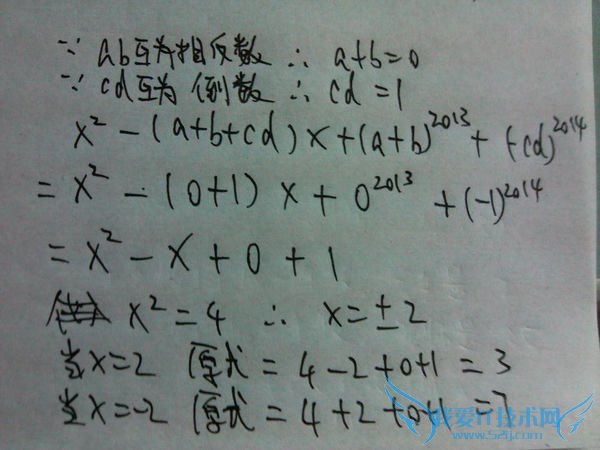 ∵ ab互为相反数 ∴ a+b=0
∵ cd互为倒数 ∴ cd=1
x²-(a+b+cd)x+(a+b)²⁰¹³+(-cd)²⁰¹⁴
=x²-(0+1)x+0²⁰¹³+(-1)²⁰¹⁴
=x²-x+0+1
x²=4 ∴ x=±2
当x=2 原式=4-2+0+1=3
当x=-2 原式=4+2+0+1=7
我爱IT技术网
www.52ij.com